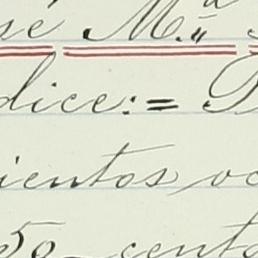 sé M.ª
dice:= 
ientos oc
50 cent